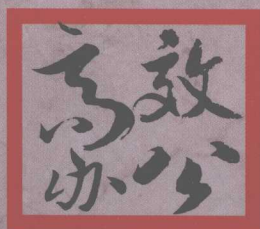 高效
办公